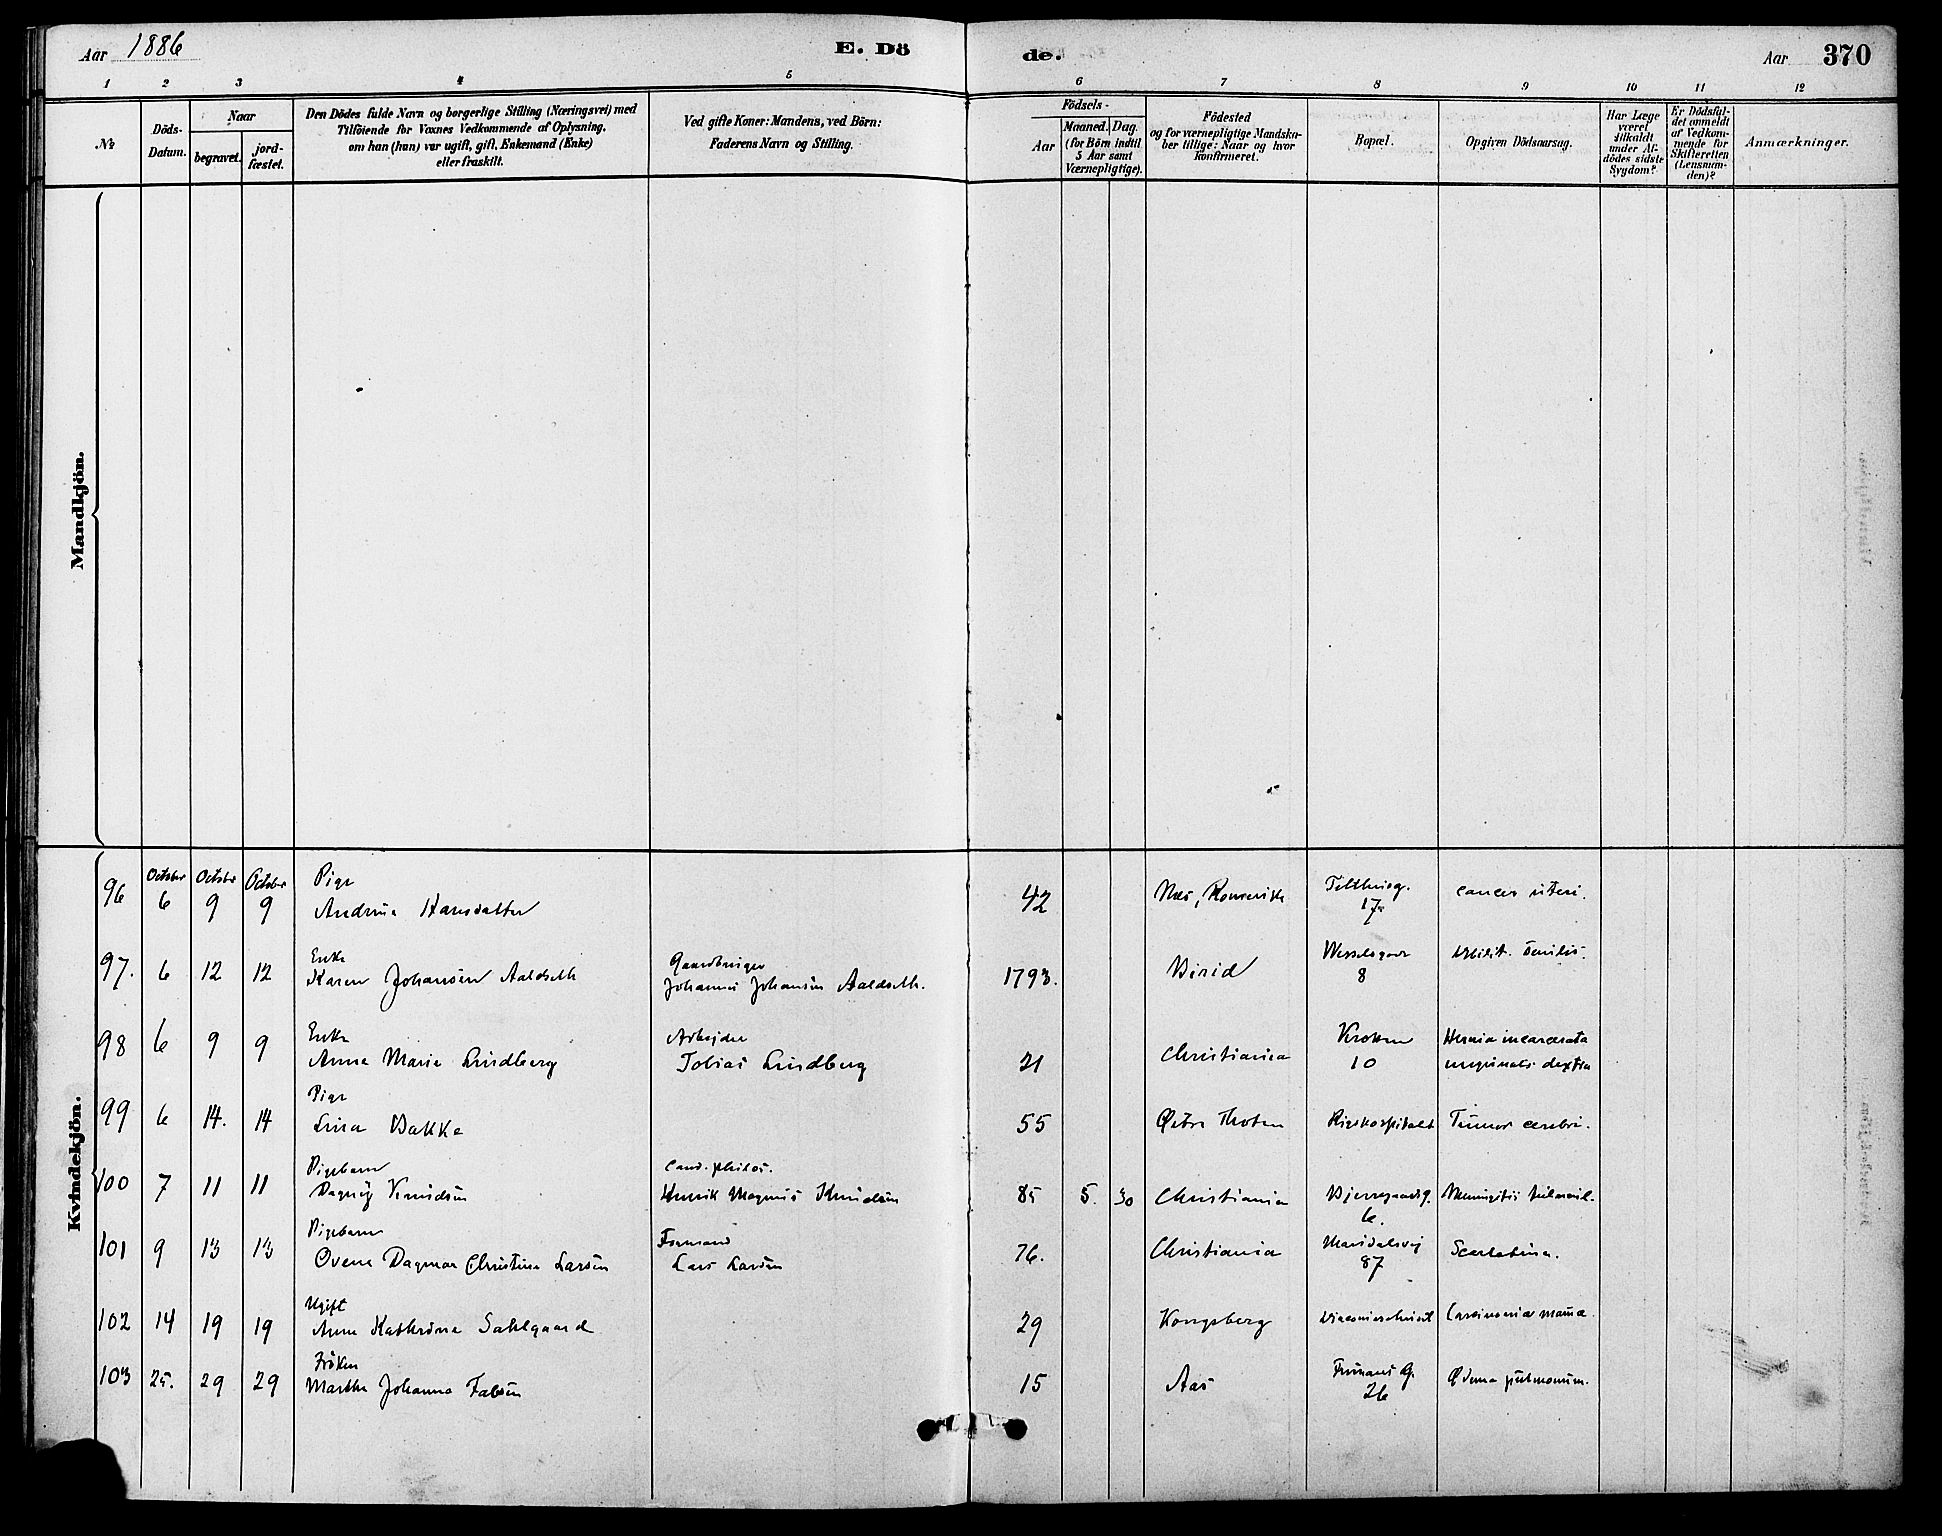 Aar 1886
E. Dö
de.
Aar 370
1 2 3 4 5 6 7 8 9 10 11 12
№
Döds-
Datum.
Naar
begravet.
jord-
fæstet.
Den Dödes fulde Navn og borgerlige Stilling (Næringsvei) med
Tilföiende for Voxnes Vedkommende af Oplysning,
om han (hun) var ugift, gift, Enkemand (Enke)
eller fraskilt.
Ved gifte Koner: Mandens, ved Börn:
Faderens Navn og Stilling.
Födsels-
Aar
Maaned. Dag.
(for Börn indtil
5 Aar samt
Værnepligtige).
Födested
og for værnepligtige Mandska-
ber tillige: Naar og hvor
konfirmeret.
Bopæl.
Opgiven Dödsaarsag.
Har Læge
været
tilkaldt
under Af-
dödes sidste
Sygdom?
Er Dödsfal-
det anmeldt
af Vedkom-
mende for
Skifteretten
(Lensman-
den)?
Anmærkninger.
Mandkjön.
Kvindekjön.
October October October Pige
96 6 9 9 Andrine Hansdatter 42 Næs, Romerike 17 cancer uteri.
Enke Gaardbruger
97. 6 12 12 Karen Johansen Aaldseth Johannes Johansen Aaldseth. 1793. Birid Wesselsgade 8 debilit. senilis.
Enke Arbejder
98 6 9 9 Anne Marie Lindberg Tobias Lindberg 21 Christiania Kroken 10 Hernia incarcerata
inguinalis dextra
Pige
99 6 14. 14 Lina Bakke 55 Østre Thoten Rigshospitalet Tumor cerebri.
Pigebarn Cand. philos.
100 7 11 11 Dagny Knudsen Henrik Magnus Knudsen 85 5. 30 Christiania Bjerregaardsg. 6. Meningitis
Pigebarn Formand
101 9 13 13 Ovene Dagmar Christine Larsen Lars Larsen 76. Christiania Maridalsvej 87 Scarlatina.
Ugift
102 14 19 19 Anne Kathrine Sahlgaard 29 Kongsberg Carcinoma mamma.
Fröken
103 25. 29 29 Marthe Johanna Falsen 15 Aas 26 Ødema pulmonum.